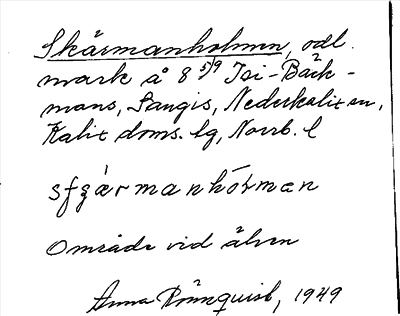 Skärmanholmen, odl.
mark å 8 5/9 Isi-Bäck-
mans, Sangis, Nederkalix sn,
Kalix doms. lg, Norrb. l
sfʒàrmanhólman
Område vid älven
Anna Rönnquist, 1949